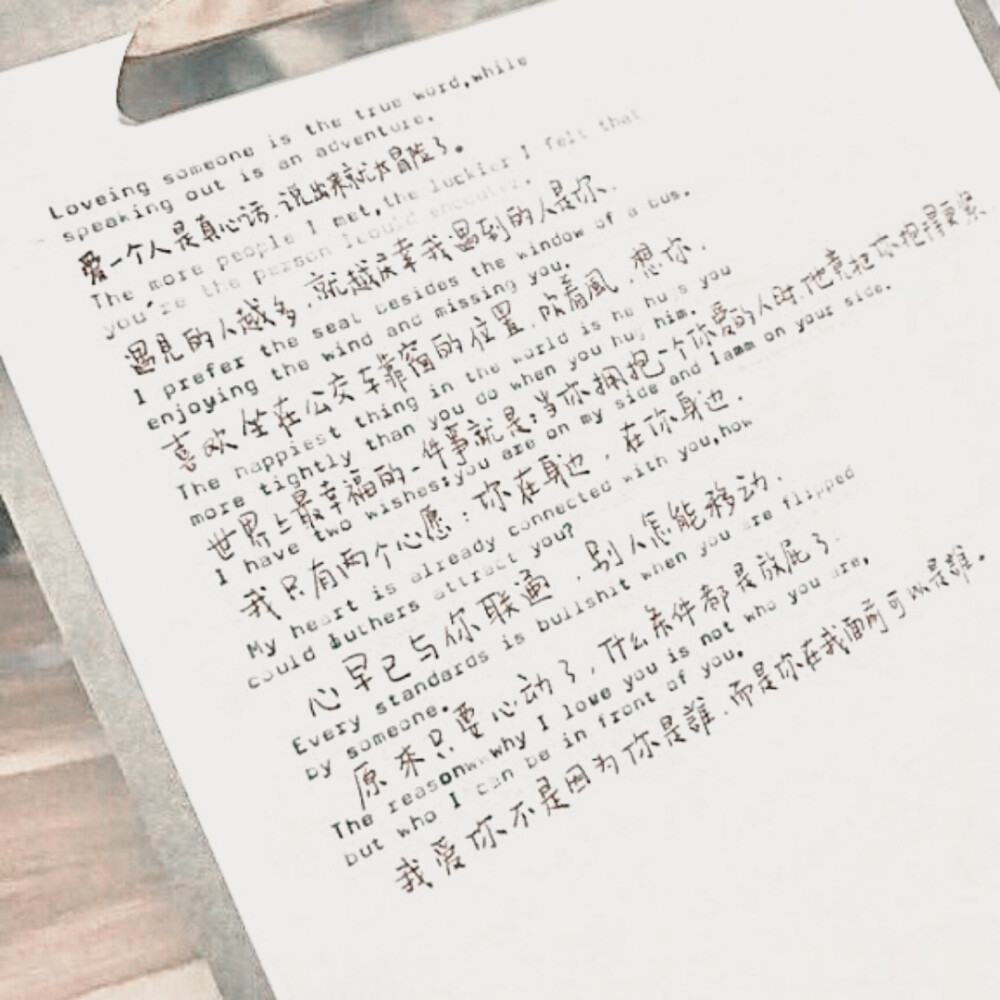 Loveing someone is the true word,while
speaking out is an adventure.
爱一个人是真心话.说出来就大冒险了。
The more people I met,the luckier I felt that
you're the person I could encounter.
遇见的人越多.就越庆幸我遇到的人是你.
I prefer the seat besides the window of a bus.
enjoying the wind and missing you.
喜欢坐在公交车靠窗的位置.吹着風.想你.
The happiest thing in the world is he hugs you
more tightly than you do when you hug him.
世界上最幸福的一件事就是:当你拥抱一个你爱的人时.他竟把你抱得更紧
I have two wishes:you are on my side and Iamm on your side.
我只有两个心愿:你在身边.在你身边.
My heart is already connected with you,how
could buthers attract you?
心早已与你联通.别人怎能移动.
Every standards is bullshit when you are flipped
by someone.
原来只要心动了,什么条件都是放屁了.
The reasonwwwhy I love you is not who you are,
but who I can be in front of you.
我爱你不是因为你是誰.而是你在我面前可以是誰.